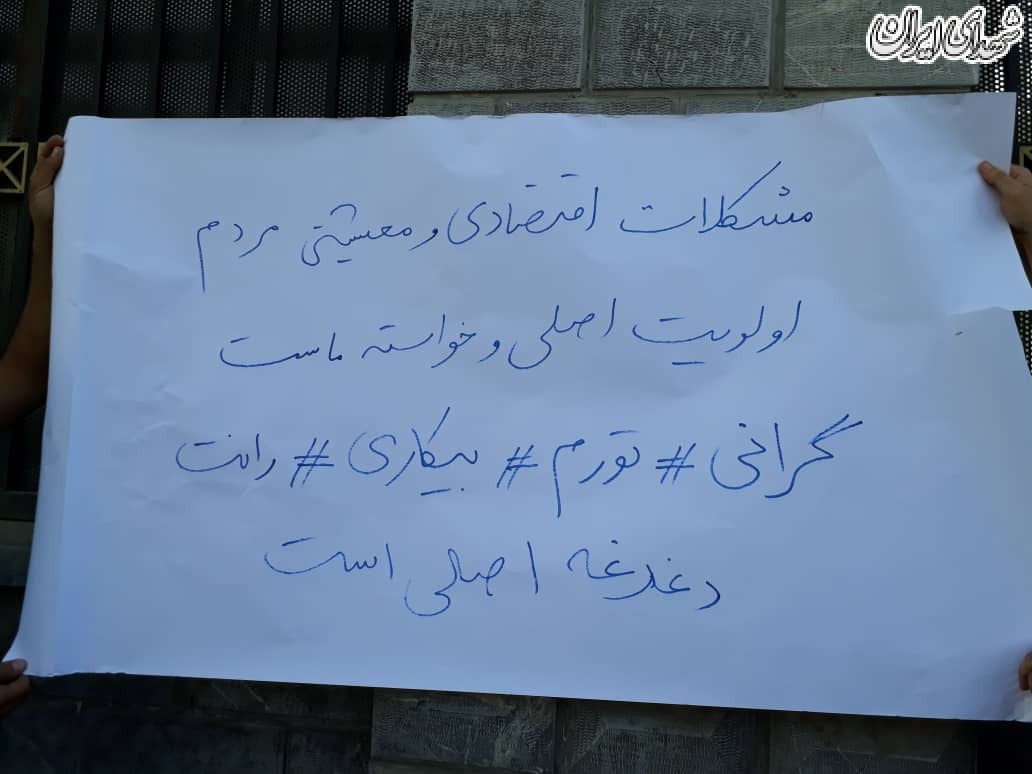 شهدای ایران
مشکلات اقتصادی و معیشتی مردم
اولویت اصلی و خواسته ماست
گرانی # تورم # بیکاری # رانت
دغدغه اصلی است